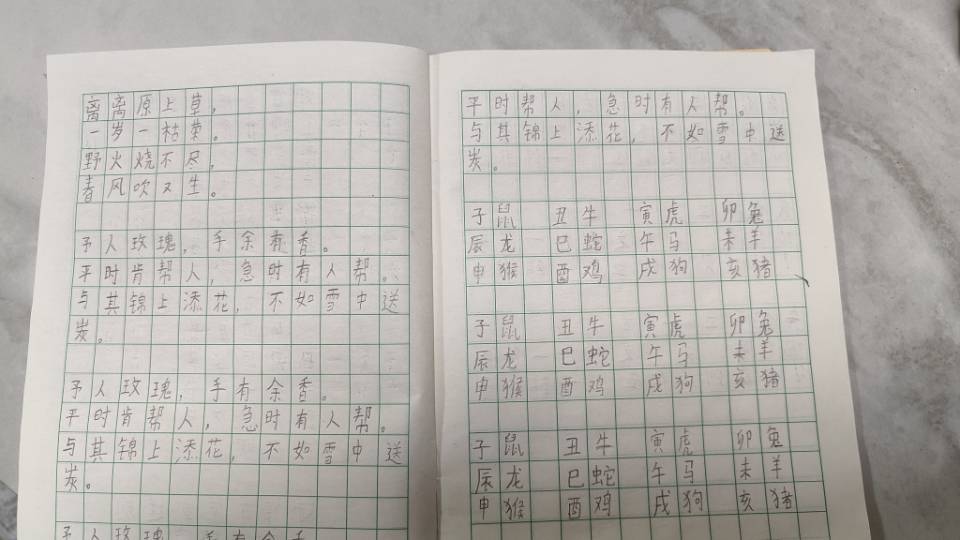 离离原上草，
一岁一枯荣。
野火烧不尽，
春风吹又生。
予人玫瑰，手余有香。
平时肯帮人，急时有人帮。
与其锦上添花，不如雪中送
炭。
予人玫瑰，手有余香。
平时肯帮人，急时有人帮。
与其锦上添花，不如雪中送
炭。
予人玫瑰，手有余香
平时帮人，急时有人帮。
与其锦上添花，不如雪中送
炭。
子鼠 丑牛 寅虎 卯兔
辰龙 巳蛇 午马 未羊
申猴 酉鸡 戌狗 亥猪
子鼠 丑牛 寅虎 卯兔
辰龙 巳蛇 午马 未羊
申猴 酉鸡 戌狗 亥猪
子鼠 丑牛 寅虎 卯兔
辰龙 巳蛇 午马 未羊
申猴 酉鸡 戌狗 亥猪